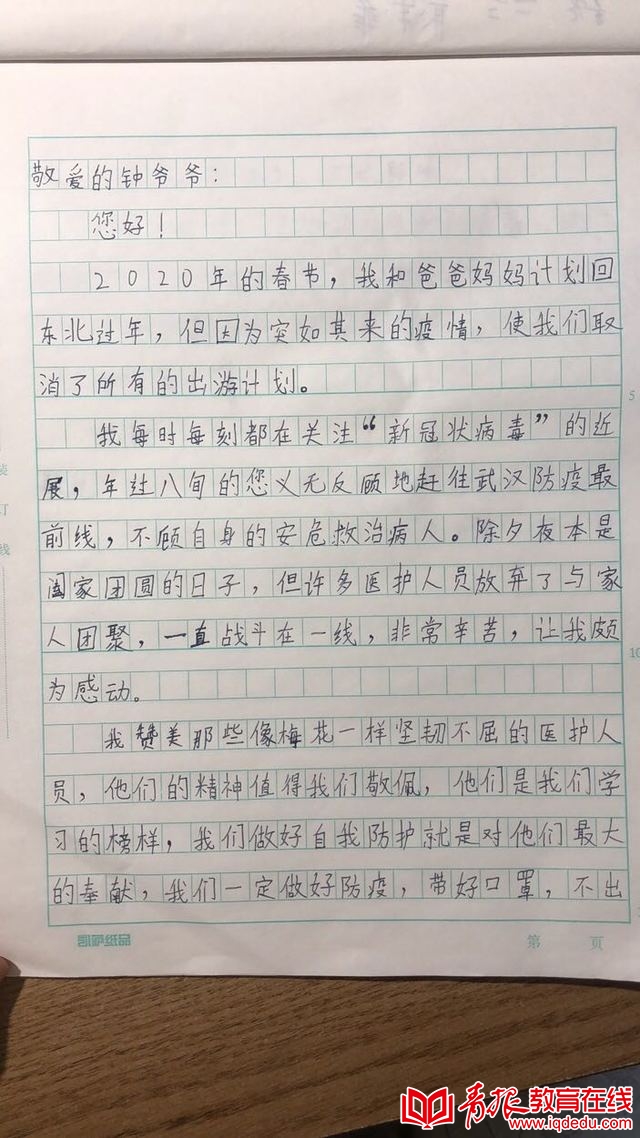 敬爱的钟爷爷：
您好！
2020年的春节，我和爸爸妈妈计划回
东北过年，但因为突如其来的疫情，使我们取
消了所有的出游计划。
5
我每时每刻都在关注“新冠状病毒”的近
展，年过八旬的您义无反顾地赶往武汉防疫最
前线，不顾自身的安危救治病人。除夕夜本是
阖家团圆的日子，但许多医护人员放弃了与家
人团聚，一直战斗在一线，非常辛苦，让我颇
10
为感动。
我赞美那些像梅花一样坚韧不屈的医护人
员，他们的精神值得我们敬佩，他们是我们学
习的榜样，我们做好自我防护就是对他们最大
的奉献，我们一定做好防疫，带好口罩，不出
装
订
线
凯萨纸品
第 页
青报教育在线
www.iqdedu.com